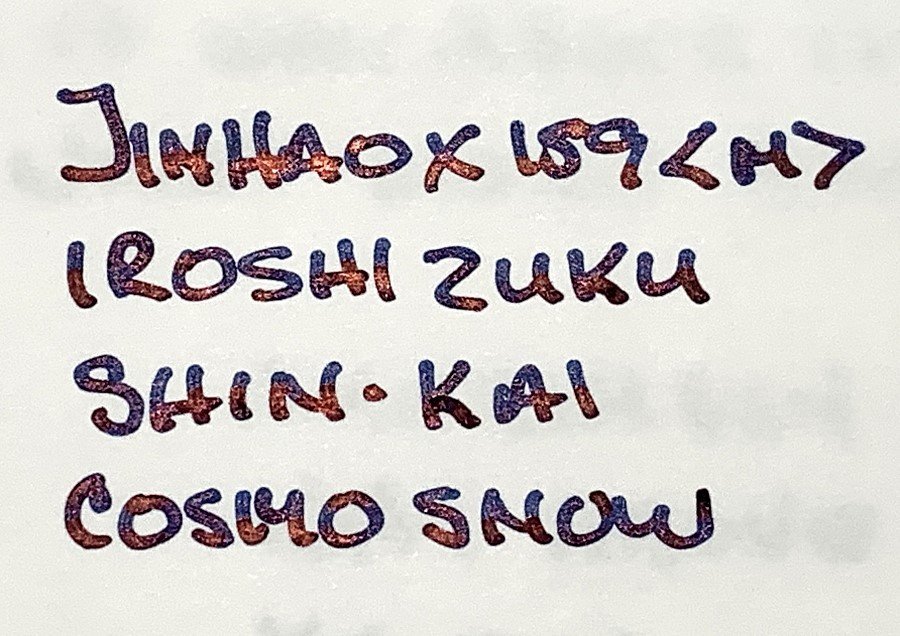 JINHAO X159 <M>
IROSHIZUKU
SHIN·KAI
COSMO SNOW